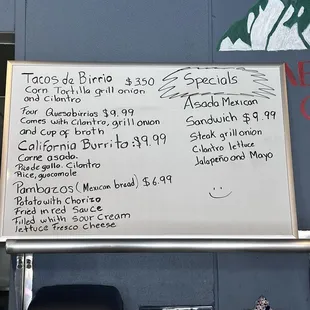 Tacos de Birrio $3.50
Corn Tortilla grill onion
and Cilantro
Four Quesabirrias $9.99
Comes with Cilantro, grill onion
and cup of broth
California Burrito: $9.99
Carne asada.
Pico de gallo. Cilantro
Rice, guacamole
Pambazos (Mexican bread) $6.99
Potato with Chorizo
Fried in red Sauce
Filled whith Sour Cream
lettuce Fresco Cheese
Specials
Asada Mexican
Sandwich $9.99
Steak grill onion
Cilantro lettuce
Jalapeño and Mayo